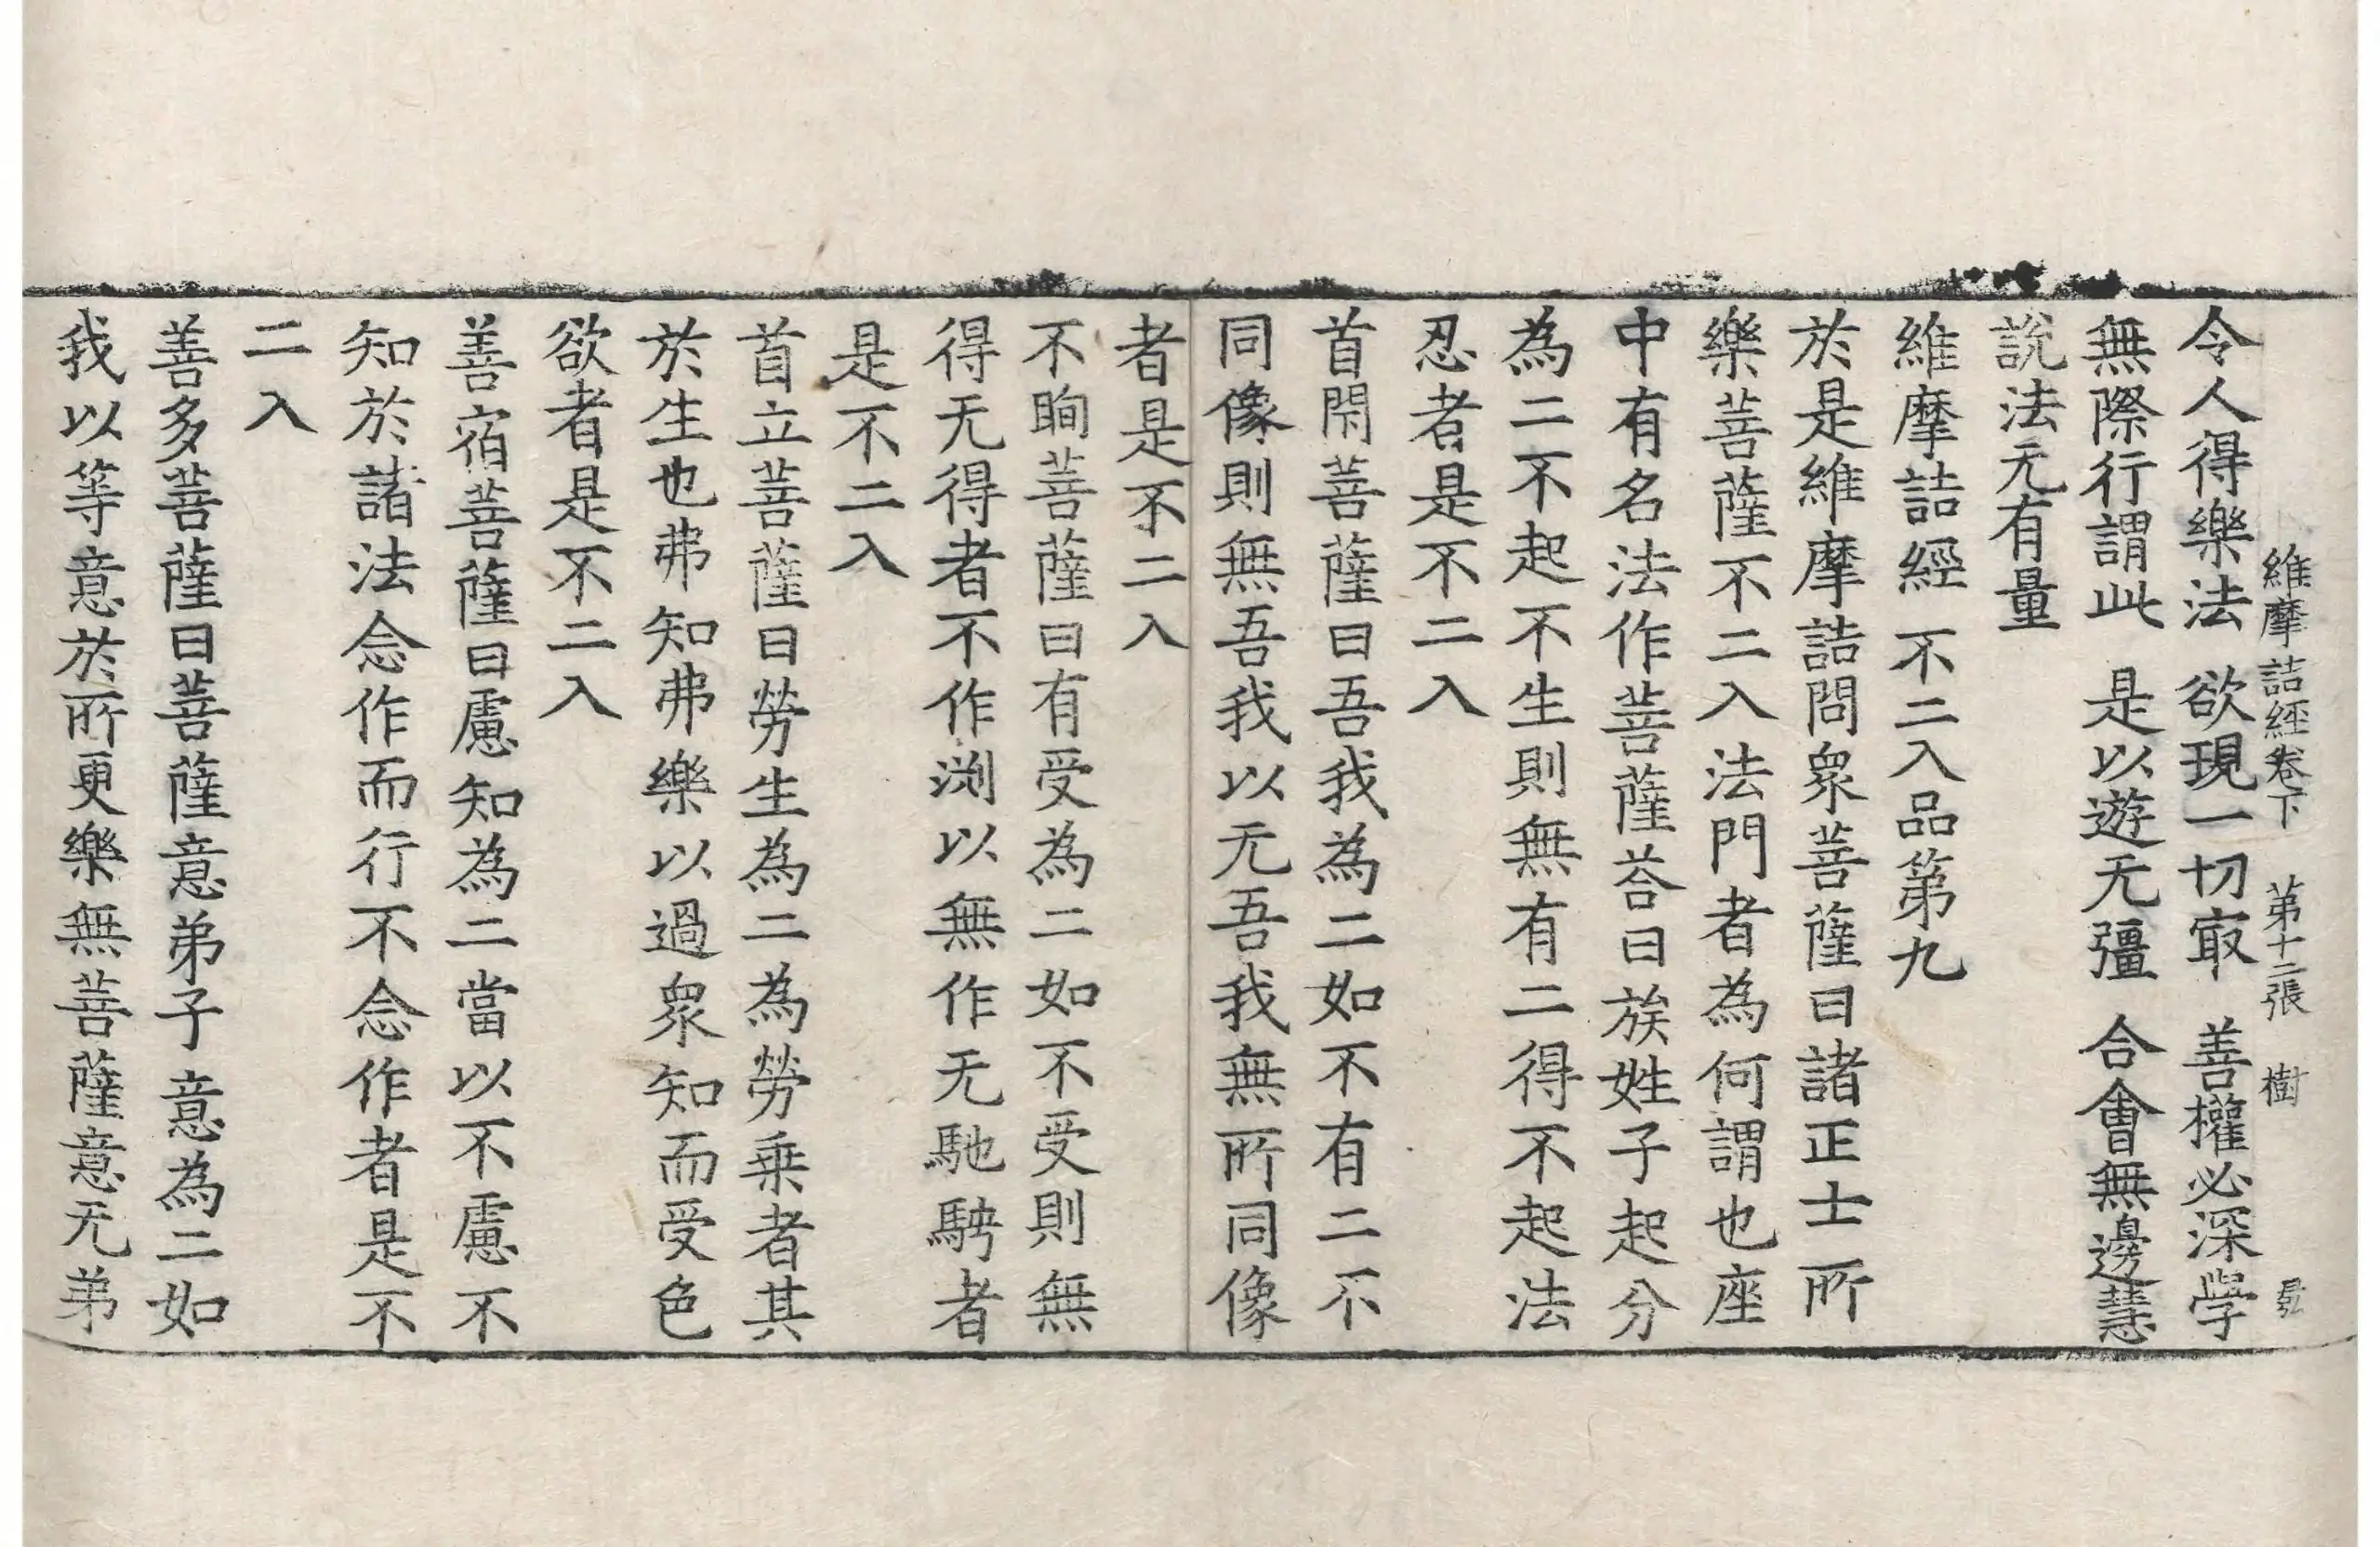 維摩詰經卷下 第十二張 樹
令人得樂法 欲現一切㝡 善權必深學
無際行謂此 是以遊无彊 合會無邊慧
說法无有量
維摩詰經 不二入品第九
於是維摩詰問衆菩薩曰諸正士所
樂菩薩不二入法門者為何謂也座
中有名法作菩薩荅曰族姓子起分
為二不起不生則無有二得不起法
忍者是不二入
首閇菩薩曰吾我為二如不有二不
同像則無吾我以无吾我無所同像
者是不二入
不眴菩薩曰有受為二如不受則無
得无得者不作渕以無作无馳騁者
是不二入
首立菩薩曰勞生為二為勞乗者其
於生也弗知弗樂以過衆知而受色
欲者是不二入
善宿菩薩曰慮知為二當以不慮不
知於諸法念作而行不念作者是不
二入
善多菩薩曰菩薩意弟子意為二如
我以等意於所更樂無菩薩意无弟